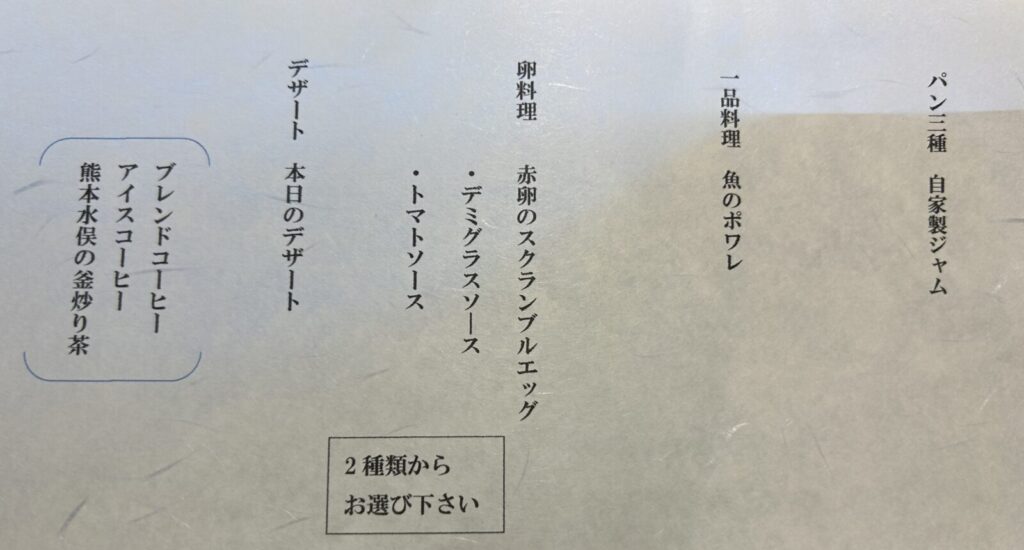 パン三種　自家製ジャム
一品料理　魚のポワレ
卵料理　赤卵のスクランブルエッグ
・デミグラスソース
・トマトソース
2種類から
お選び下さい
デザート　本日のデザート
ブレンドコーヒー
アイスコーヒー
熊本水俣の釜炒り茶